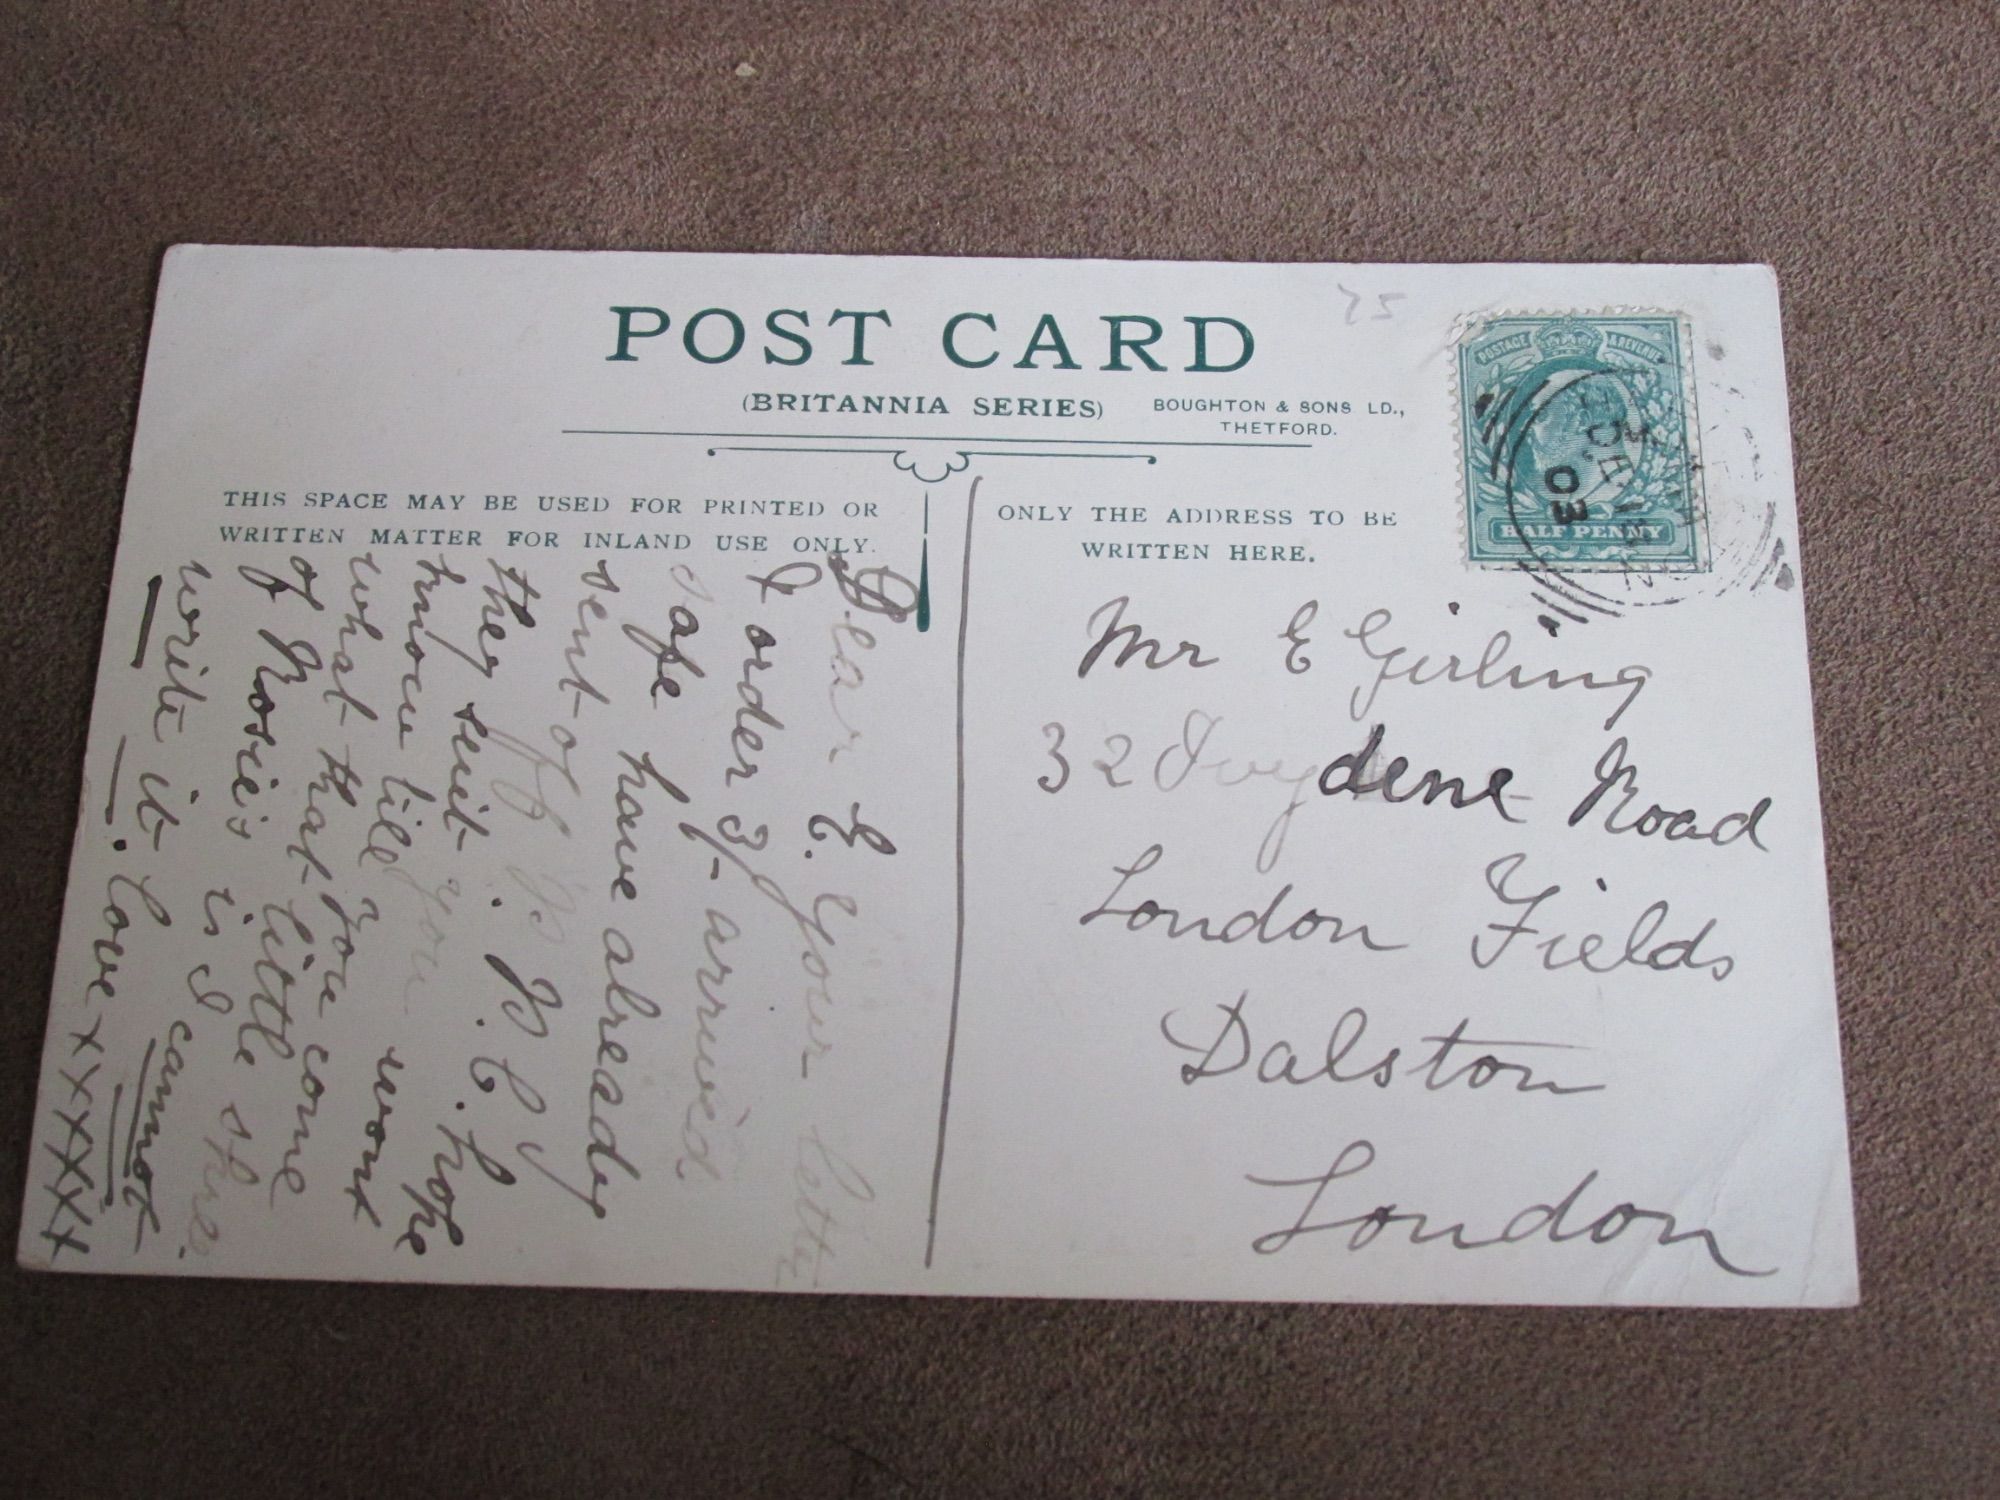 75
POST CARD
(BRITANNIA SERIES)
BOUGHTON & SONS LD.,
THETFORD.
POSTAGE & REVENUE
HALF PENNY
03
THIS SPACE MAY BE USED FOR PRINTED OR
WRITTEN MATTER FOR INLAND USE ONLY.
Dear E. Your letter
& order 3/- arrived
safe have already
sent off
they suit. P.C. hope
know till you
what that you come
of Rosie's little she
is I cannot
write it. Love x x x x x x
ONLY THE ADDRESS TO BE
WRITTEN HERE.
Mr E Girling
32 Ivydene Road
London Fields
Dalston
London